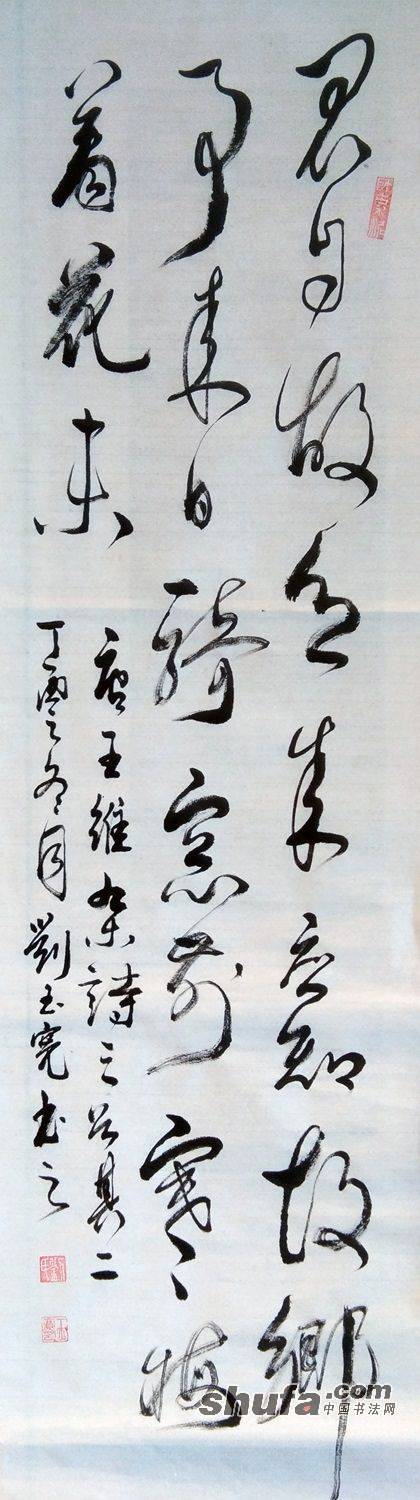 君自故鄉来应知故鄉
事来日綺窓前寒梅
着花未
唐王維杂詩三首其二
丁酉之冬月劉玉亮书之
shufa.com
中国书法网